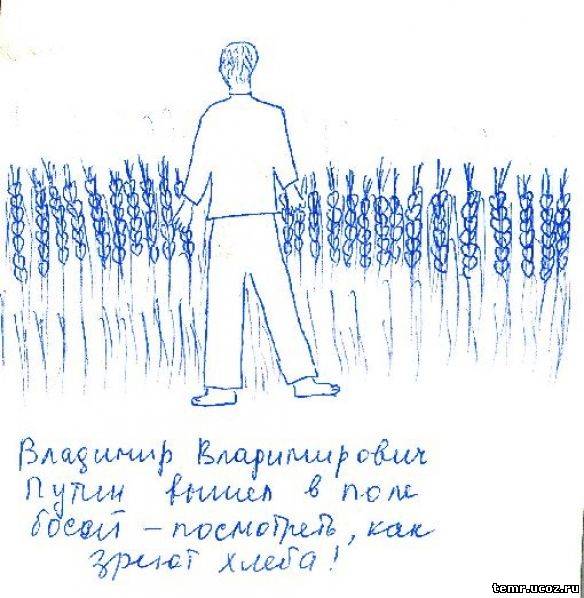 Владимир Владимирович
Путин вышел в поле
босой – посмотреть, как
зреют хлеба!
temr.ucoz.ru